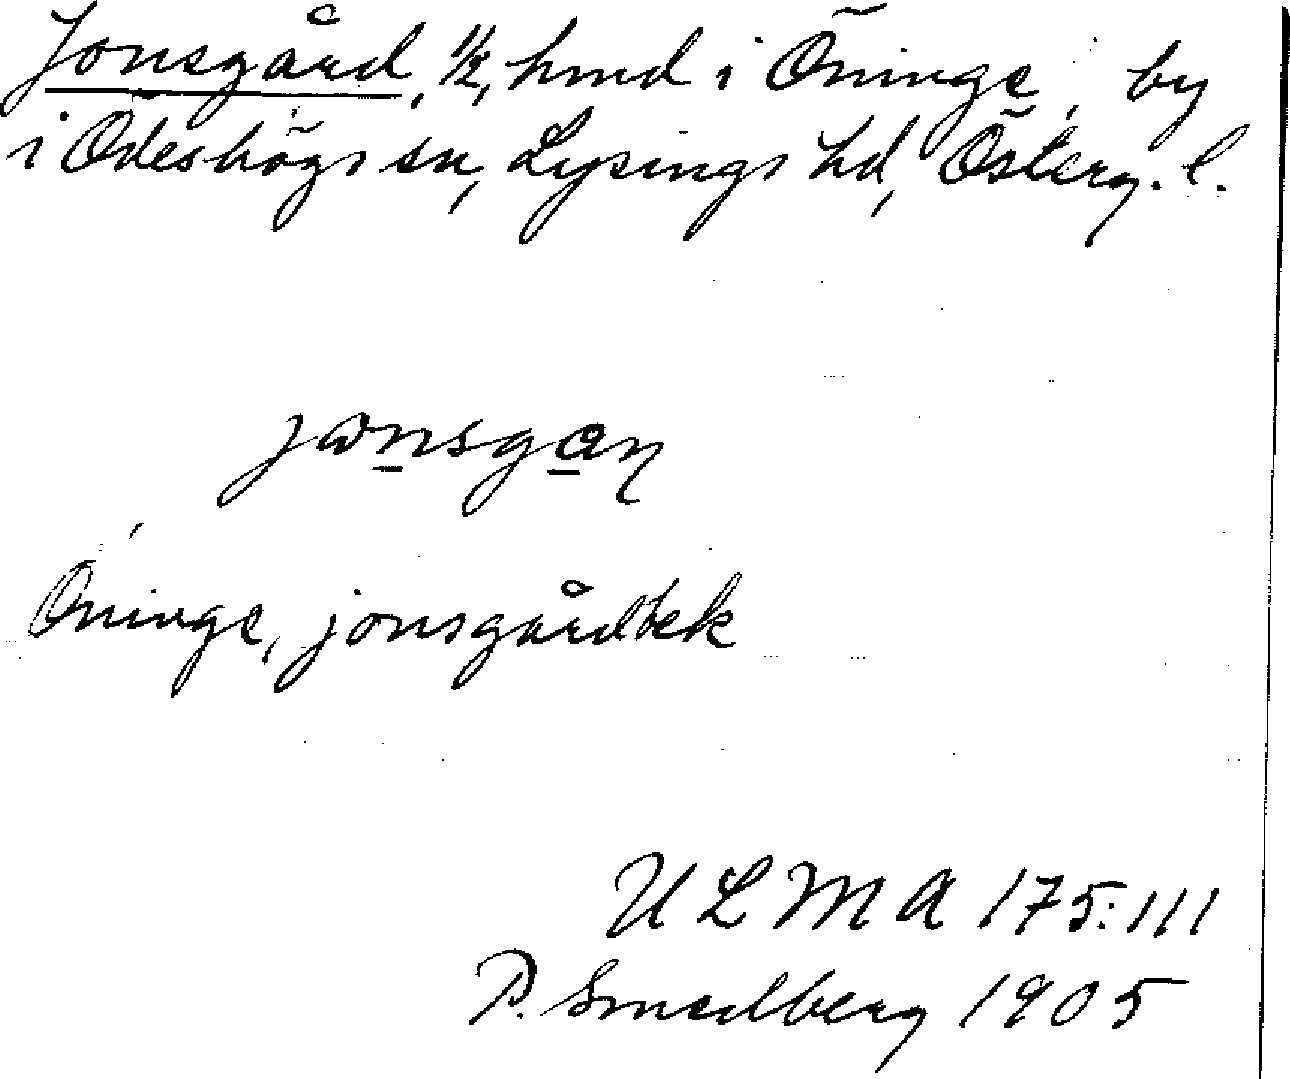 Jonsgård, 1/2, hmd i Öninge, by
i Ödeshögs sn, Lysings hd, Österg. l.
Öninge, jonsgårdbek
U L M A 175:111
P. Smedberg 1905